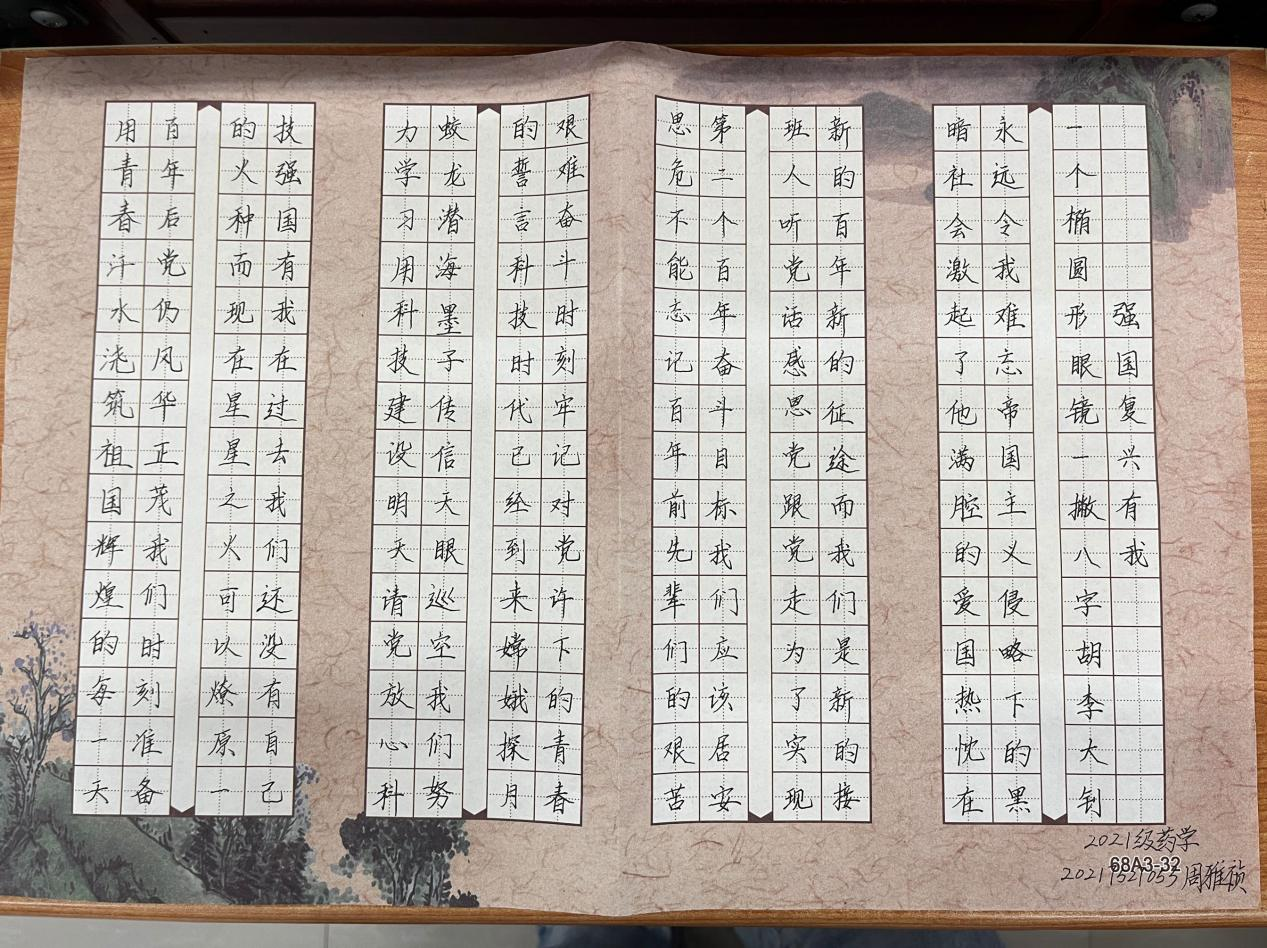 强国复兴有我
一个椭圆形眼镜一撇八字胡李大钊
永远令我难忘帝国主义侵略下的黑
暗社会激起了他满腔的爱国热忱在
新的百年新的征途而我们是新的接
班人听党话感思党跟党走为了实现
第二个百年奋斗目标我们应该居安
思危不能忘记百年前先辈们的艰苦
艰难奋斗时刻牢记对党许下的青春
的誓言科技时代已经到来嫦娥探月
蛟龙潜海墨子传信天眼巡空我们努
力学习用科技建设明天请党放心科
技强国有我在过去我们还没有自己
的火种而现在星星之火可以燎原一
百年后党仍风华正茂我们时刻准备
用青春汗水浇筑祖国辉煌的每一天
2021级药学
68A3-32
周雅祯